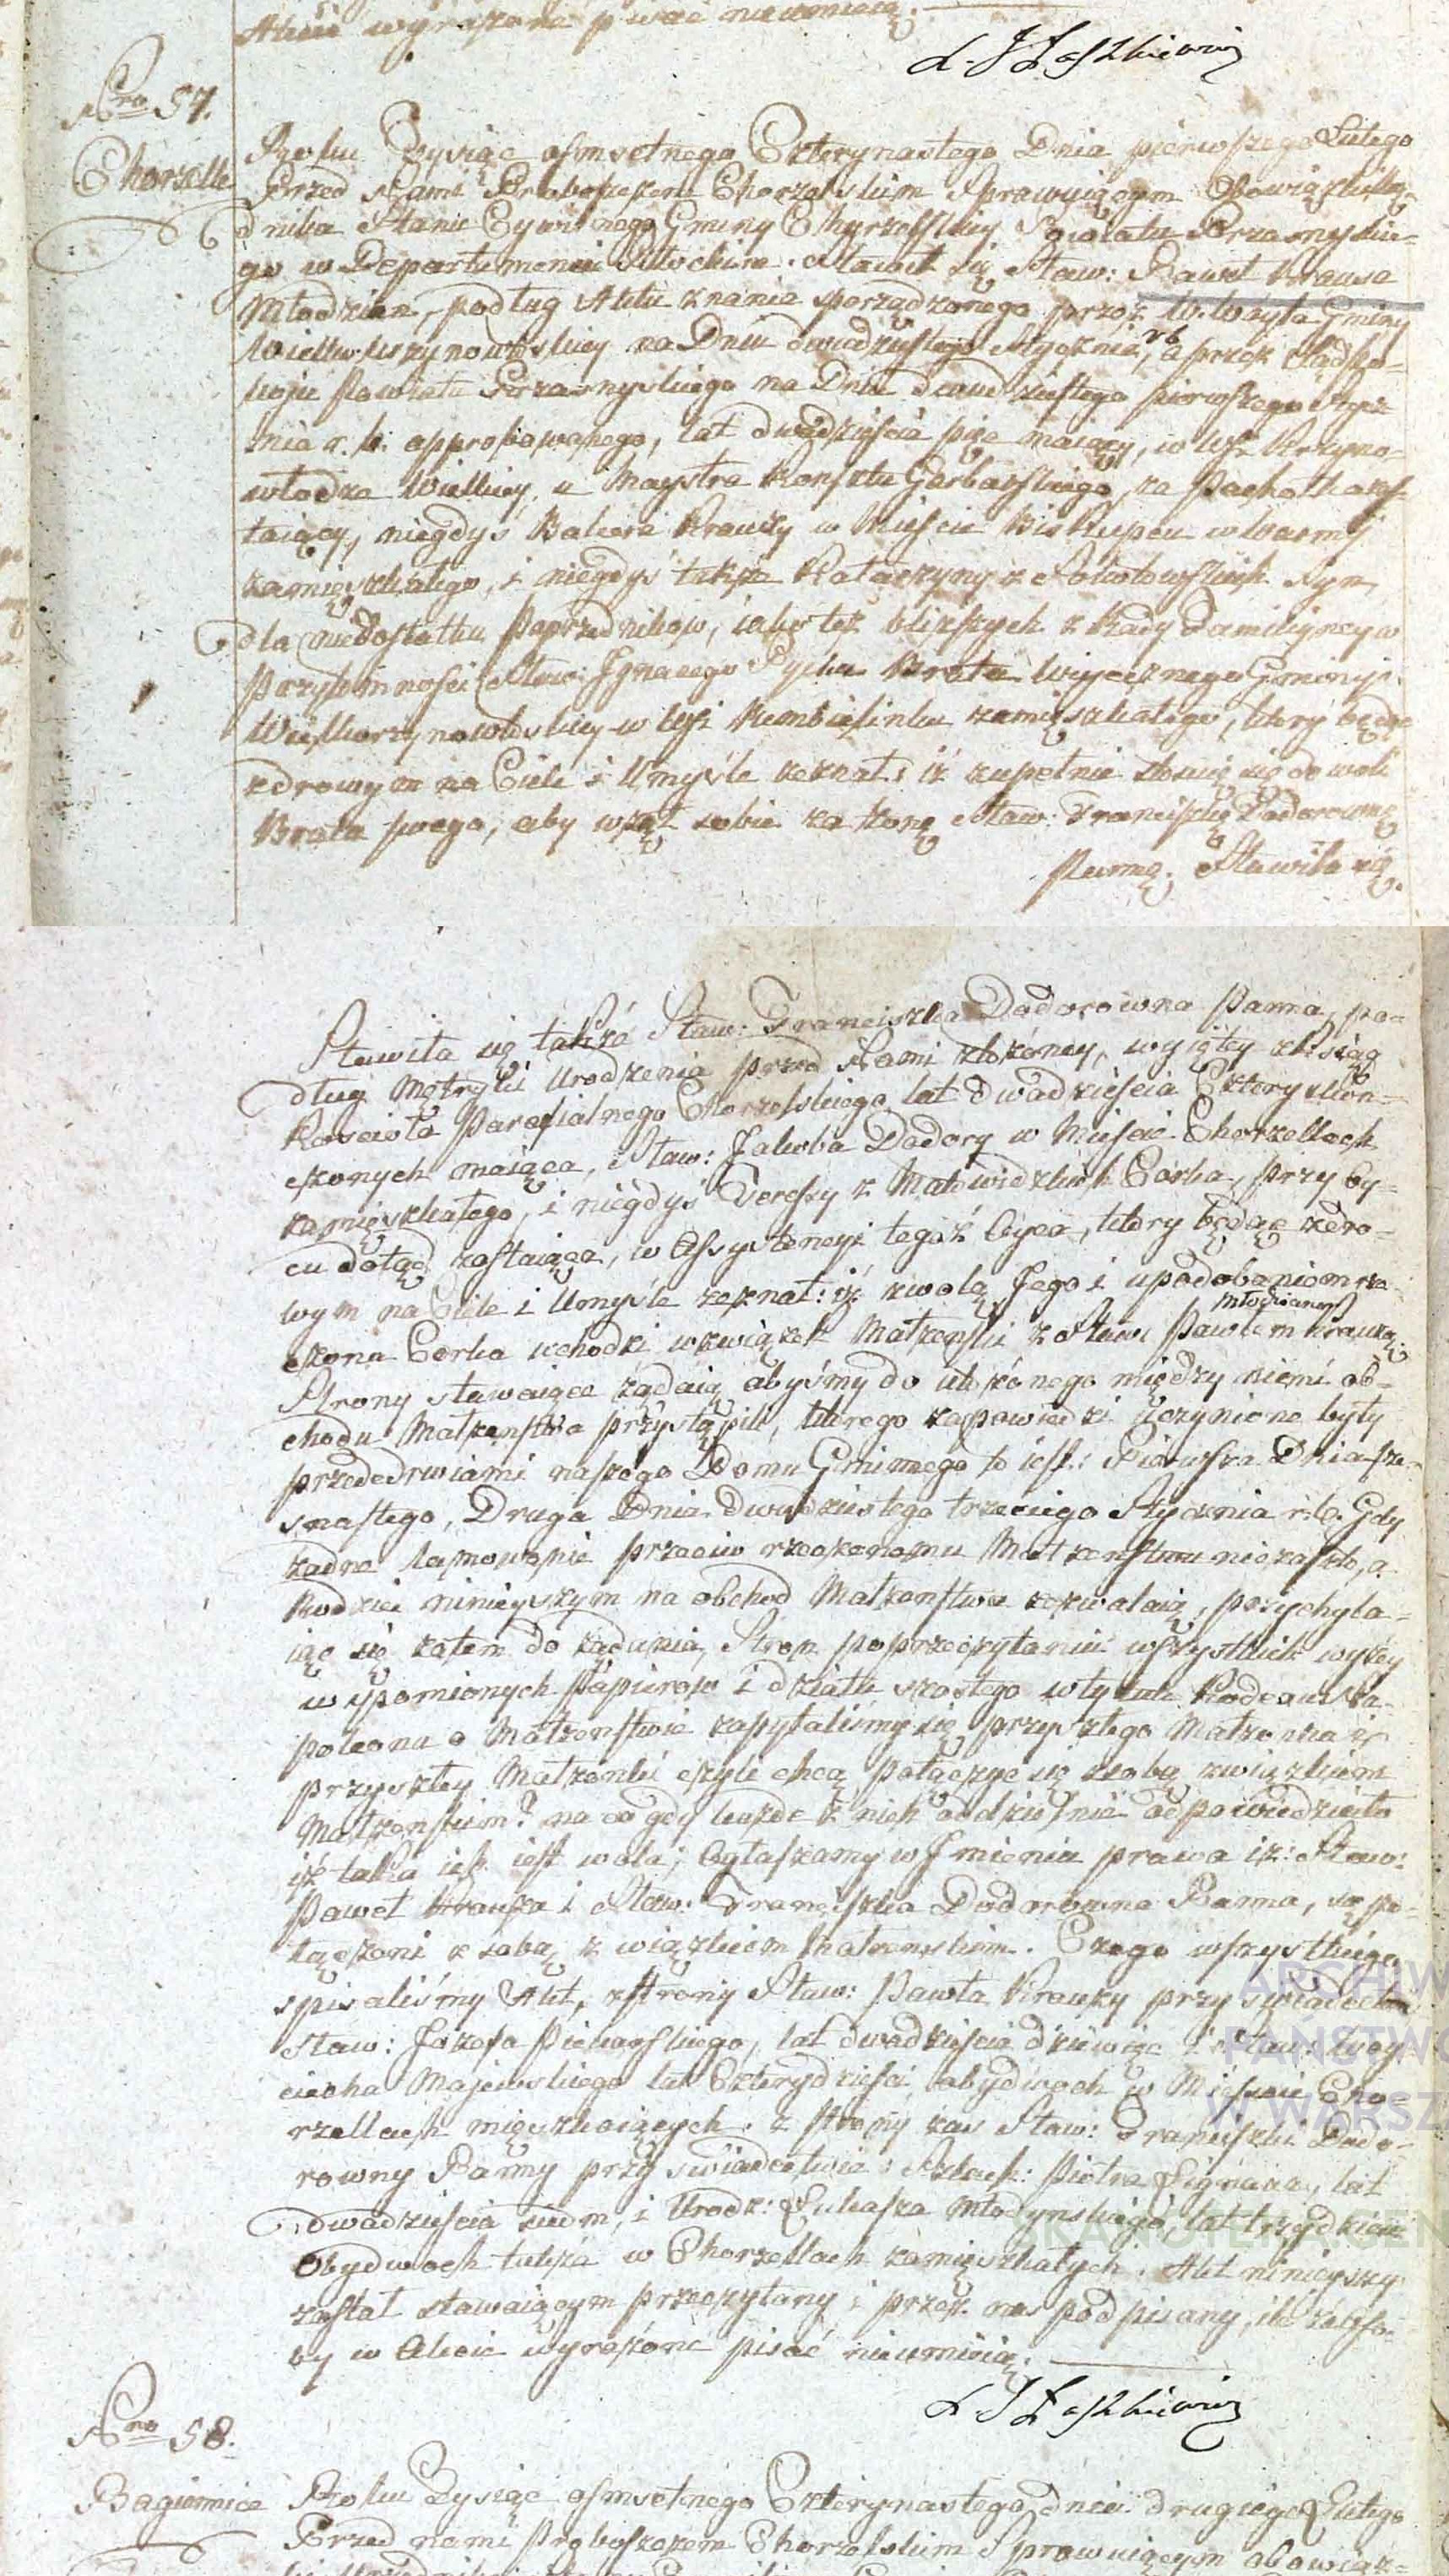 Akcie wyrażone pisać nieumieią.
X. J Łaszkiewicz
Nro 57.
Chorzelle
Roku Tysiąc osmsetnego Czterynastego Dnia pierwszego Lutego
Przed Nami Proboszczem Chorzelskim Sprawuiącym Obowiązki Urzę-
dnika Stanu Cywilnego Gminy Chorzelskiey Powiatu Przasnyskie-
go w Departamencie Płockim. Stawił się Sław: Paweł Krause
Młodzian, podług Aktu znania sporządzonego przez W. Woyta Gminy
na Dniu dwudziestego Stycznia rb, a przez Sąd Po-
koju Powiatu Przasnyskiego na Dniu dwudziestego pierwszego Stycz
nia r. b. approbowanego, lat dwadzieścia pięć maiący, w Wsi Krzyno-
włodze Wielkiey, u Maystra Konsztu Garbarskiego, za Pachołka zos-
taiący, niegdyś Krauzy w Mieście Biskupcu w Warmij
zamięszkałego, i niegdyś także Katarzyny z Sokołowskich Syn,
dla niedostatku Poprzedników, iako też bliższych z Rady Familijney w
Przytomności Sław: Ignacego Brata Gminy
w Wsi zamięszkałego, ktory będąc
zdrowym na Ciele i Umyśle zeznał; iż zupełnie stosuię się do woli
Brata swego, aby wziął sobie za żonę Sław: Franciszkę Dadorownę
Pannę. Stawiła się
Stawiła się także Sław: Franciszka Dadorowna Panna, po-
dług Metryki Urodzenia przed Nami złożoney, wyiętey z Ksiąg
Kościoła Parafialnego Chorzelskiego lat dwadzieścia Cztery skoń-
czonych maiąca, Sław: Jakoba Dadory w Mieście Chorzellach
zamięszkałego, i niegdyś Teressy z Małowidzkich Corka, przy Oy-
cu dotąd zostaiąca, w Assystencyi tegoż Oyca, ktory będąc zdro-
wym na Ciele i Umyśle zeznał: iż z wolą Jego i upodobaniem rze
czona Corka wchodzi w związek Małżeński z Sław: Pawłem Krauzą
Młodzianem
Strony stawaiące żądaią abyśmy do ułożonego między niemi ob-
chodu Małżeństwa przystąpili, ktorego zapowiedzi uczynione były
przededrwiami naszego Domu Gminnego to iest: Pierwsza Dnia sze-
snastego, Druga Dnia dwudziestego trzeciego Stycznia r: b. Gdy
żadne tamowanie przeciw rzeczonemu Małżenstwu niezaszło, a
Rodzice ninieyszym na obchod Małżenstwa zezwalaią, przychyla-
iąc się zatem do żądania Stron po przeczytaniu wszystkich wyżey
wspomionych Papierow i działu szostego w tytule Kodexu Na-
poleona o Małżenstwie zapytaliśmy się przyszłego Małżonka i
przyszłey Małżonki czyli chcą połączyć się z sobą związkiem
Małżenskim? na co gdy każde z nich oddzielnie odpowiedziało
iż taka ich iest wola; Ogłaszamy w Jmieniu prawa iż: Sław:
Paweł Krauza i Sław: Franciszka Dadorowna Panna, są po-
łączeni z sobą związkiem Małżenskim. Czego wszystkiego
spisaliśmy Akt, z strony Sław: Pawła Krauzy przy świadectwie
Sław: Jozefa Piekarskiego, lat dwadzieścia dziewięć i Sław: Woy
ciecha Majewskiego lat Czterydzieści obydwoch w Mieście Cho-
rzellach mięszkaiących. z strony zas Sław: Franciszki Dado-
rowny Panny przy świadectwie: Szlach: Piotra lat
dwadzieścia siedm, i Urodz: Łukasza Młodynskiego, lat trzydzieści
Obydwoch także w Chorzellach zamięszkałych. Akt ninieyszy
został stawaiącym przeczytany i przez nas podpisany, ile że Oso-
by w Akcie wyrażone pisać nieumieią.
X. J Łaszkiewicz
Nro 58.
Bagienice
Roku Tysiąc osmsetnego Czterynastego dnia drugiego Lutego
Przed nami Proboszczem Chorzelskim Sprawuiącym obowiąz-
ARCHIW
PAŃSTWO
W WARSZ
SKANOTEKA.GEN